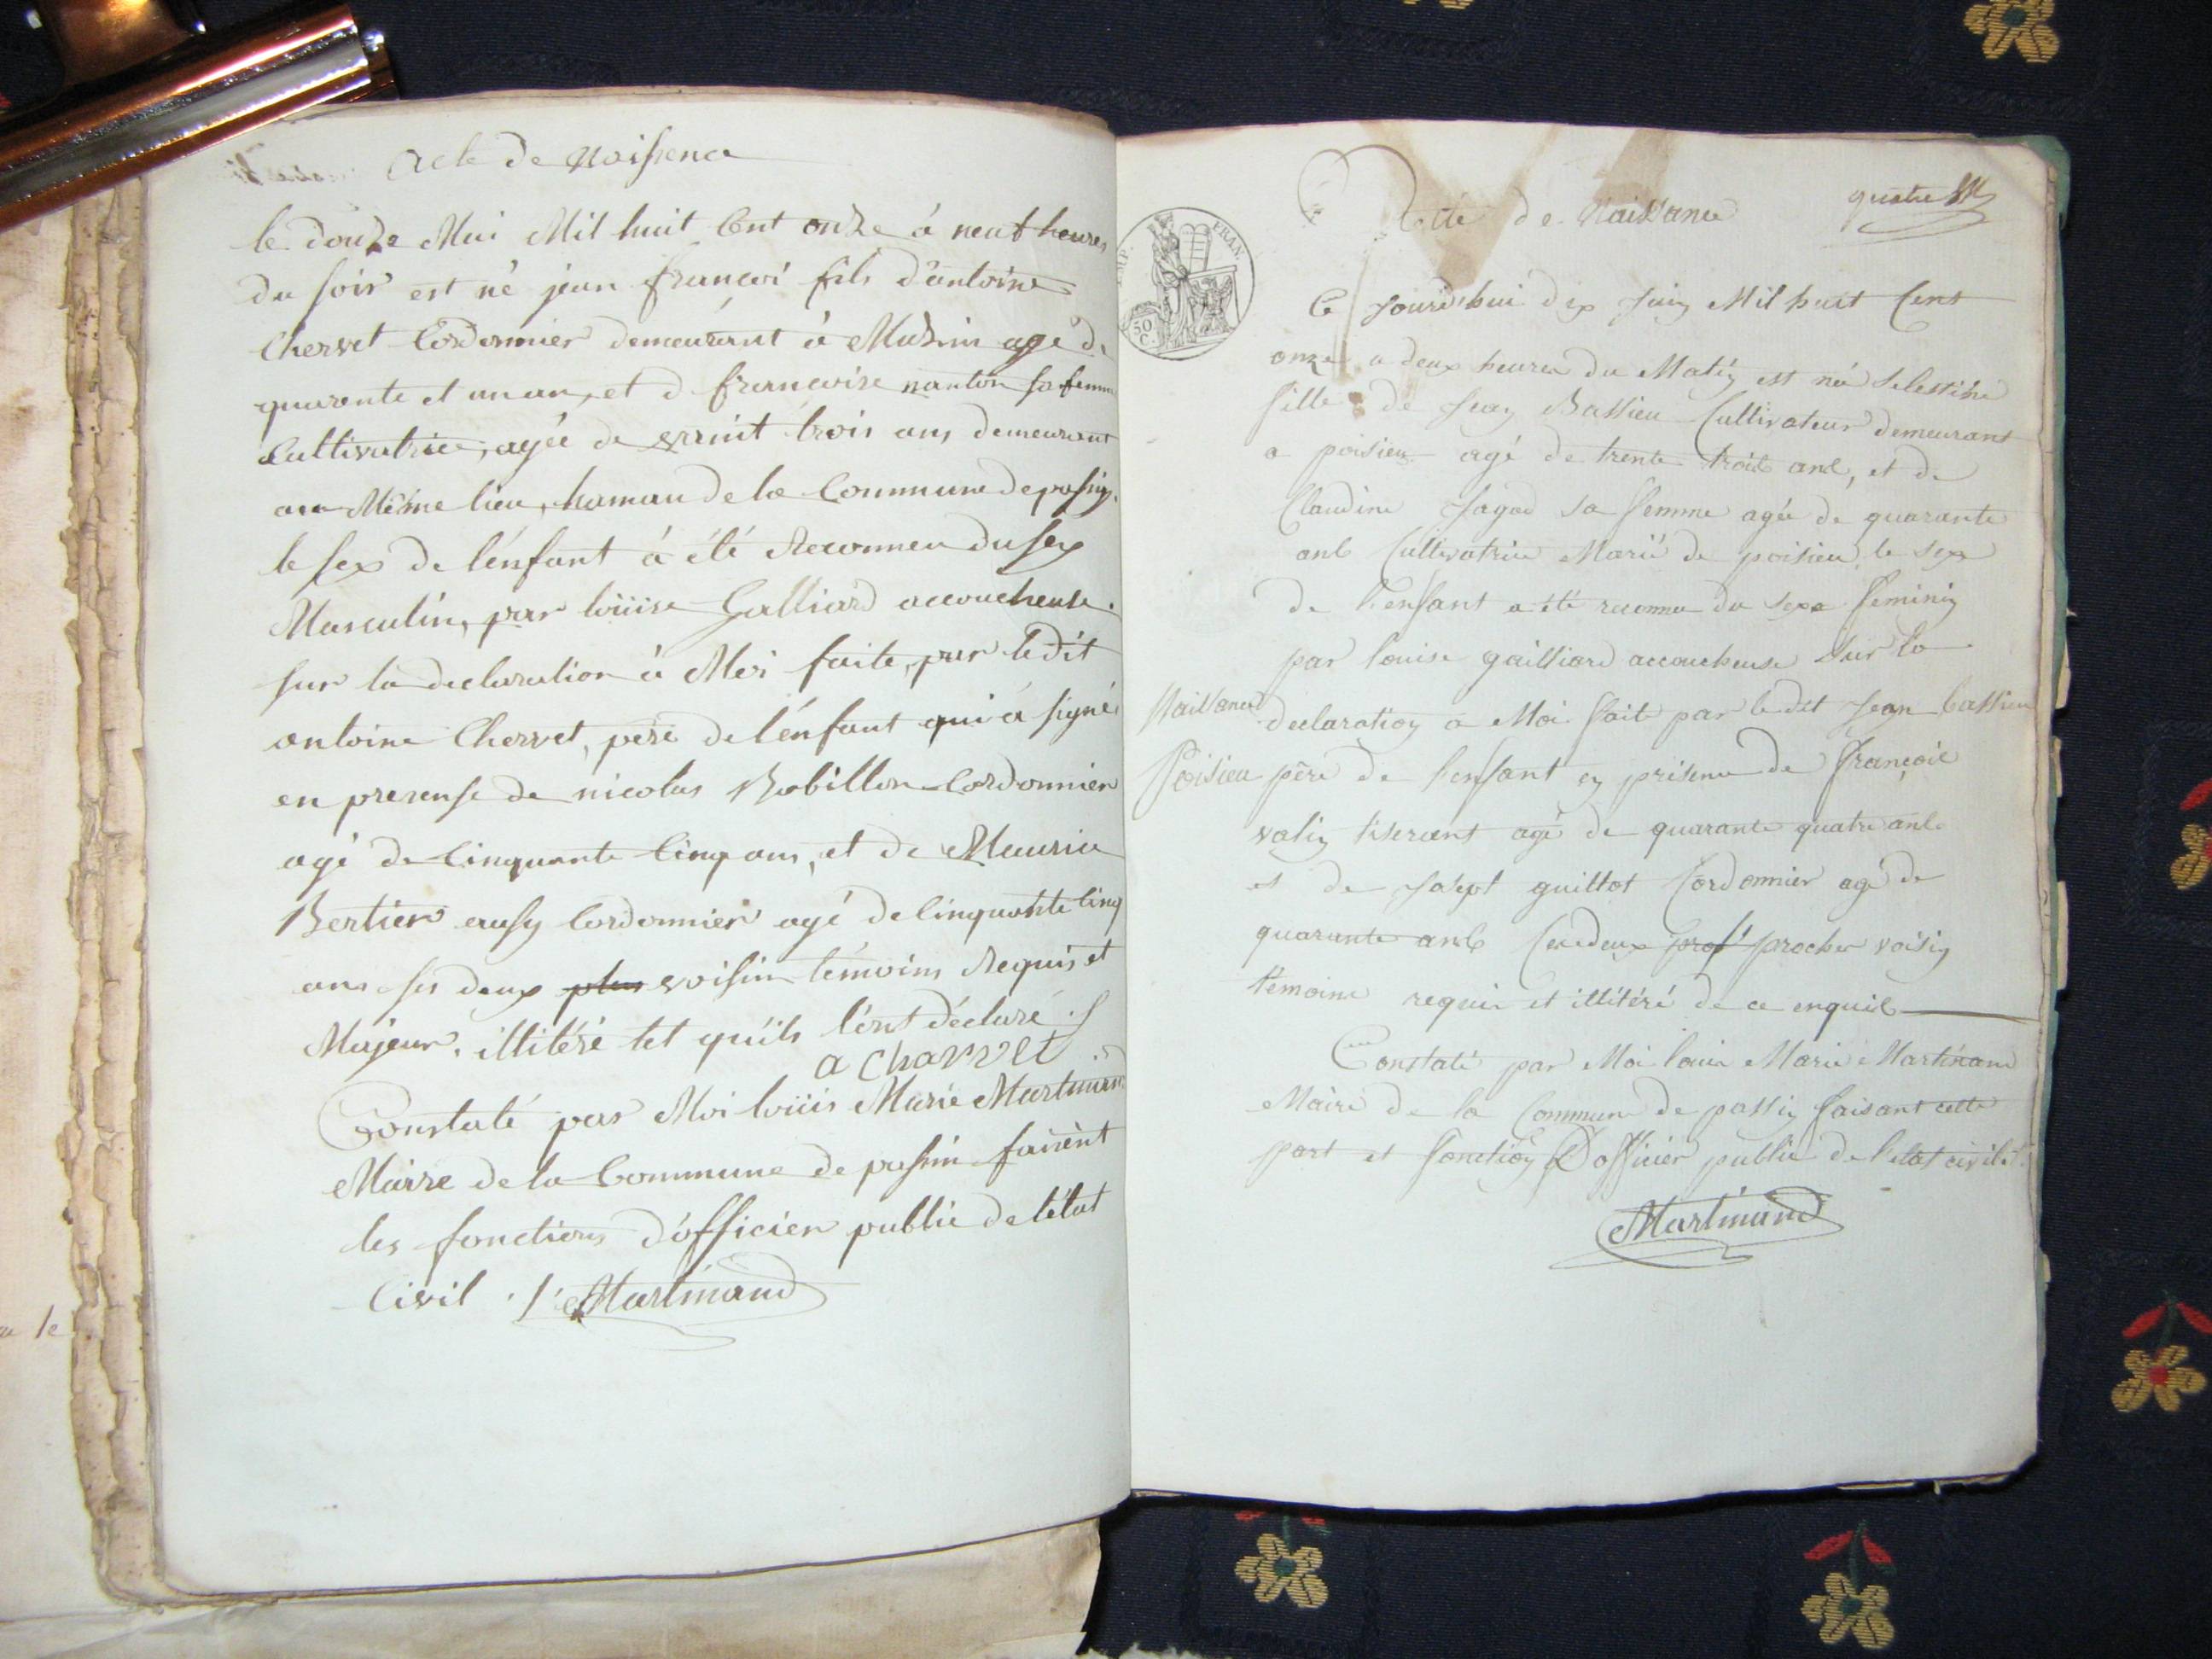 Acte de Noissence
le douze Mai Mil huit Cent onze á neuf heures
du soir est né jean françoi fils d'antoine
Chervet Cordonnier demeurant á Musin agé de
quarente et un an, et d francoise nanton sa femme
Cultivatrice, agée de vvint trois ans demeurant
au Même lieu, hamau de la Commune de passin,
le sex de l'énfant á été Reconneu du sex
Masculin, par loüise Galliard accoucheuse.
sur la declaration á Moi faite, par ledit
antoine Chervet, pére de l'énfant qui á signé
en presense de nicolas Bobillon Cordonnier
agé de Cinquante Cinq ans, et de Maurice
Bertier ausy Cordonnier agé de Cinquante Cinq
ans ses deux plus voisin témoins Requis et
Majeur. illitéré tel qu'ils l'ont déclaré ./
a Charvet
Constaté par Moi loüis Marie Martinand
Maire de la Commune de passin faisent
les fonctions d'officier public de l'état
Civil ./. Martinand
IMP. FRAN.
50 C.
quatre
Acte de Naissance
Ce Jourd'hui dix Juin Mil huit Cent
onze a deux heures du Matin est neé Selestine
fille de Jean Bassieu Cultivateur demeurant
a poisieu agé de trente trois ans, et de
Claudine Jagod sa femme agée de quarante
ans Cultivatrice Marié de poisieu le sexe
de l'enfant a été reconnu du sexe feminin
par louise gailliard accoucheuse Sur la
Naissance
declaration a Moi faite par ledit Jean bassieu
Poisieu
père de l'enfant en presence de François
valin tiserant agé de quarante quatre ans
et de Josept guillot Cordonnier agé de
quarante ans Ces deux prof procher voisin
témoins requis et illitéré de ce enquis
Constaté par Moi louis Marie Martinand
Maire de la Commune de passin faisant cette
part et fonction D officier public de l'etat civil ./.
Martinand